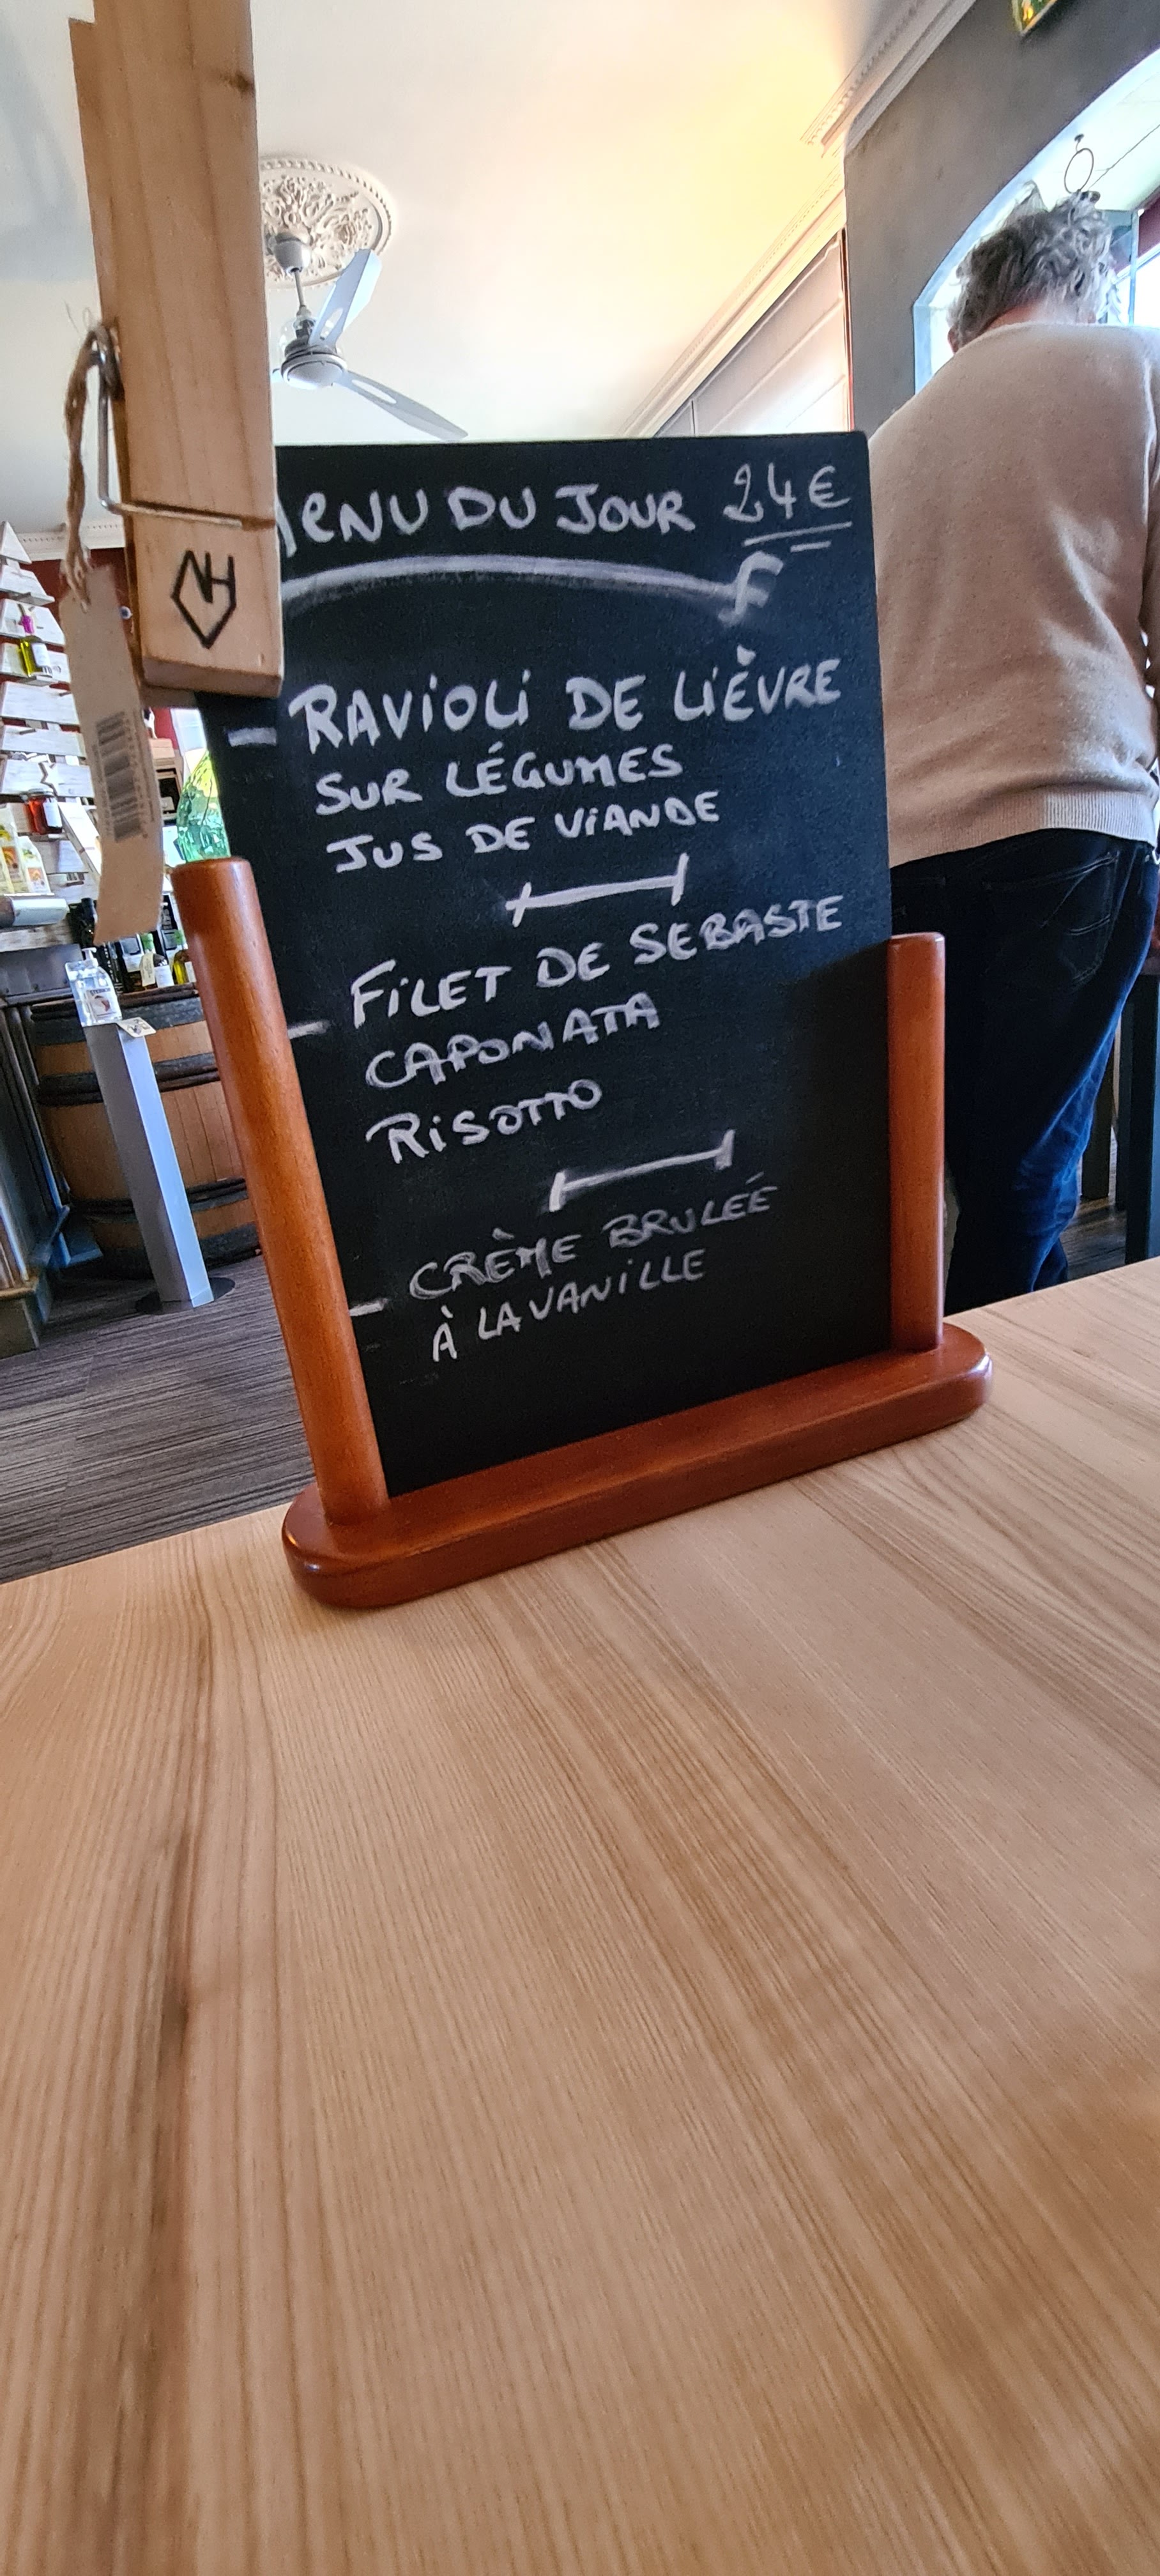 MENU DU JOUR 24€
- RAVIOLI DE LIÈVRE
SUR LÉGUMES
JUS DE VIANDE
- FILET DE SEBASTE
CAPONATA
RISOTTO
- CRÈME BRULEÉ
À LA VANILLE
NH